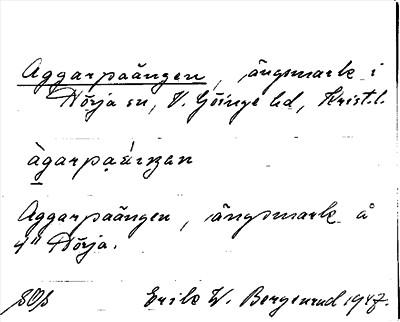 Aggarpaängen, ängsmark i
Nörja sn, V. Göinge hd, Krist. l.
àgarpaáŋən
Aggarpaängen, ängsmark å
4" Nörja.
Erik W. Bergenrud 1947.